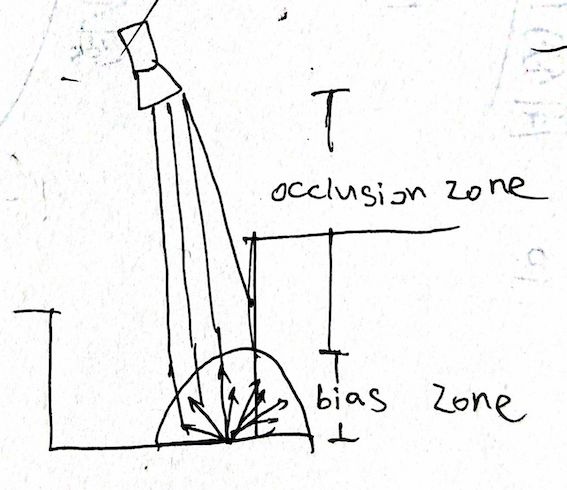 occlusion zone
bias zone